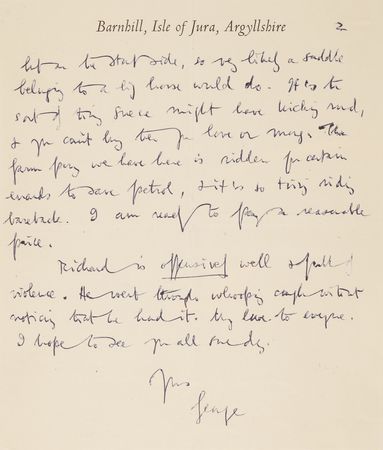 Barnhill, Isle of Jura, Argyllshire
2
but on the stout side, so very likely a saddle
belonging to a big horse would do. It is the
sort of thing someone might have kicking round,
& you can't buy them for love or money. The
farm pony we have here is ridden for certain
errands to save petrol, & it is so tiring riding
bareback. I am ready to pay a reasonable
price.
Richard is offensively well & full of
violence. He went through whooping cough without
noticing that he had it. My love to everyone.
I hope to see you all some day.
Yours
George